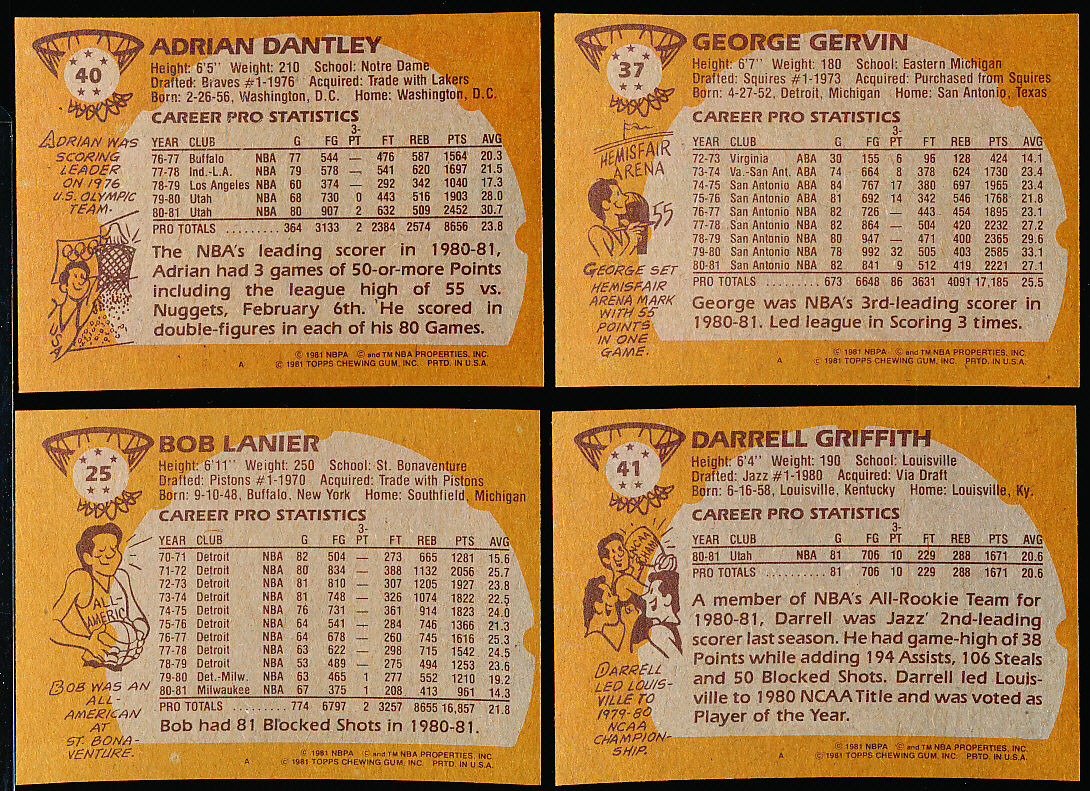 40
ADRIAN DANTLEY
Height: 6'5" Weight: 210 School: Notre Dame
Drafted: Braves #1-1976 Acquired: Trade with Lakers
Born: 2-26-56, Washington, D.C. Home: Washington, D.C.
CAREER PRO STATISTICS
YEAR CLUB G FG 3-PT FT REB PTS AVG
76-77 Buffalo NBA 77 544 — 476 587 1564 20.3
77-78 Ind.-L.A. NBA 79 578 — 541 620 1697 21.5
78-79 Los Angeles NBA 60 374 — 292 342 1040 17.3
79-80 Utah NBA 68 730 0 443 516 1903 28.0
80-81 Utah NBA 80 907 2 632 509 2452 30.7
PRO TOTALS .......... 364 3133 2 2384 2574 8656 23.8
The NBA's leading scorer in 1980-81,
Adrian had 3 games of 50-or-more Points
including the league high of 55 vs.
Nuggets, February 6th. He scored in
double-figures in each of his 80 Games.
ADRIAN WAS
SCORING
LEADER
ON 1976
U.S. OLYMPIC
TEAM.
USA
© 1981 NBPA © and TM NBA PROPERTIES, INC.
A © 1981 TOPPS CHEWING GUM, INC. PRTD. IN U.S.A.
37
GEORGE GERVIN
Height: 6'7" Weight: 180 School: Eastern Michigan
Drafted: Squires #1-1973 Acquired: Purchased from Squires
Born: 4-27-52, Detroit, Michigan Home: San Antonio, Texas
CAREER PRO STATISTICS
YEAR CLUB G FG 3-PT FT REB PTS AVG
72-73 Virginia ABA 30 155 6 96 128 424 14.1
73-74 Va.-San Ant. ABA 74 664 8 378 624 1730 23.4
74-75 San Antonio ABA 84 767 17 380 697 1965 23.4
75-76 San Antonio ABA 81 692 14 342 546 1768 21.8
76-77 San Antonio NBA 82 726 — 443 454 1895 23.1
77-78 San Antonio NBA 82 864 — 504 420 2232 27.2
78-79 San Antonio NBA 80 947 — 471 400 2365 29.6
79-80 San Antonio NBA 78 992 32 505 403 2585 33.1
80-81 San Antonio NBA 82 841 9 512 419 2221 27.1
PRO TOTALS .......... 673 6648 86 3631 4091 17,185 25.5
George was NBA's 3rd-leading scorer in
1980-81. Led league in Scoring 3 times.
HEMISFAIR
ARENA
55
GEORGE SET
HEMISFAIR
ARENA MARK
WITH 55
POINTS
IN ONE
GAME.
© 1981 NBPA © and TM NBA PROPERTIES, INC.
A © 1981 TOPPS CHEWING GUM, INC. PRTD. IN U.S.A.
25
BOB LANIER
Height: 6'11" Weight: 250 School: St. Bonaventure
Drafted: Pistons #1-1970 Acquired: Trade with Pistons
Born: 9-10-48, Buffalo, New York Home: Southfield, Michigan
CAREER PRO STATISTICS
YEAR CLUB G FG 3-PT FT REB PTS AVG
70-71 Detroit NBA 82 504 — 273 665 1281 15.6
71-72 Detroit NBA 80 834 — 388 1132 2056 25.7
72-73 Detroit NBA 81 810 — 307 1205 1927 23.8
73-74 Detroit NBA 81 748 — 326 1074 1822 22.5
74-75 Detroit NBA 76 731 — 361 914 1823 24.0
75-76 Detroit NBA 64 541 — 284 746 1366 21.3
76-77 Detroit NBA 64 678 — 260 745 1616 25.3
77-78 Detroit NBA 63 622 — 298 715 1542 24.5
78-79 Detroit NBA 53 489 — 275 494 1253 23.6
79-80 Det.-Milw. NBA 63 465 1 277 552 1210 19.2
80-81 Milwaukee NBA 67 375 1 208 413 961 14.3
PRO TOTALS .......... 774 6797 2 3257 8655 16,857 21.8
Bob had 81 Blocked Shots in 1980-81.
ALL-
AMERIC
BOB WAS AN
ALL-
AMERICAN
AT
ST. BONA-
VENTURE.
© 1981 NBPA © and TM NBA PROPERTIES, INC.
A © 1981 TOPPS CHEWING GUM, INC. PRTD. IN U.S.A.
41
DARRELL GRIFFITH
Height: 6'4" Weight: 190 School: Louisville
Drafted: Jazz #1-1980 Acquired: Via Draft
Born: 6-16-58, Louisville, Kentucky Home: Louisville, Ky.
CAREER PRO STATISTICS
YEAR CLUB G FG 3-PT FT REB PTS AVG
80-81 Utah NBA 81 706 10 229 288 1671 20.6
PRO TOTALS .......... 81 706 10 229 288 1671 20.6
A member of NBA's All-Rookie Team for
1980-81, Darrell was Jazz' 2nd-leading
scorer last season. He had game-high of 38
Points while adding 194 Assists, 106 Steals
and 50 Blocked Shots. Darrell led Louis-
ville to 1980 NCAA Title and was voted as
Player of the Year.
NCAA
CHAMP
DARRELL
LED LOUIS-
VILLE TO
1979-80
NCAA
CHAMPION-
SHIP.
© 1981 NBPA © and TM NBA PROPERTIES, INC.
A © 1981 TOPPS CHEWING GUM, INC. PRTD. IN U.S.A.